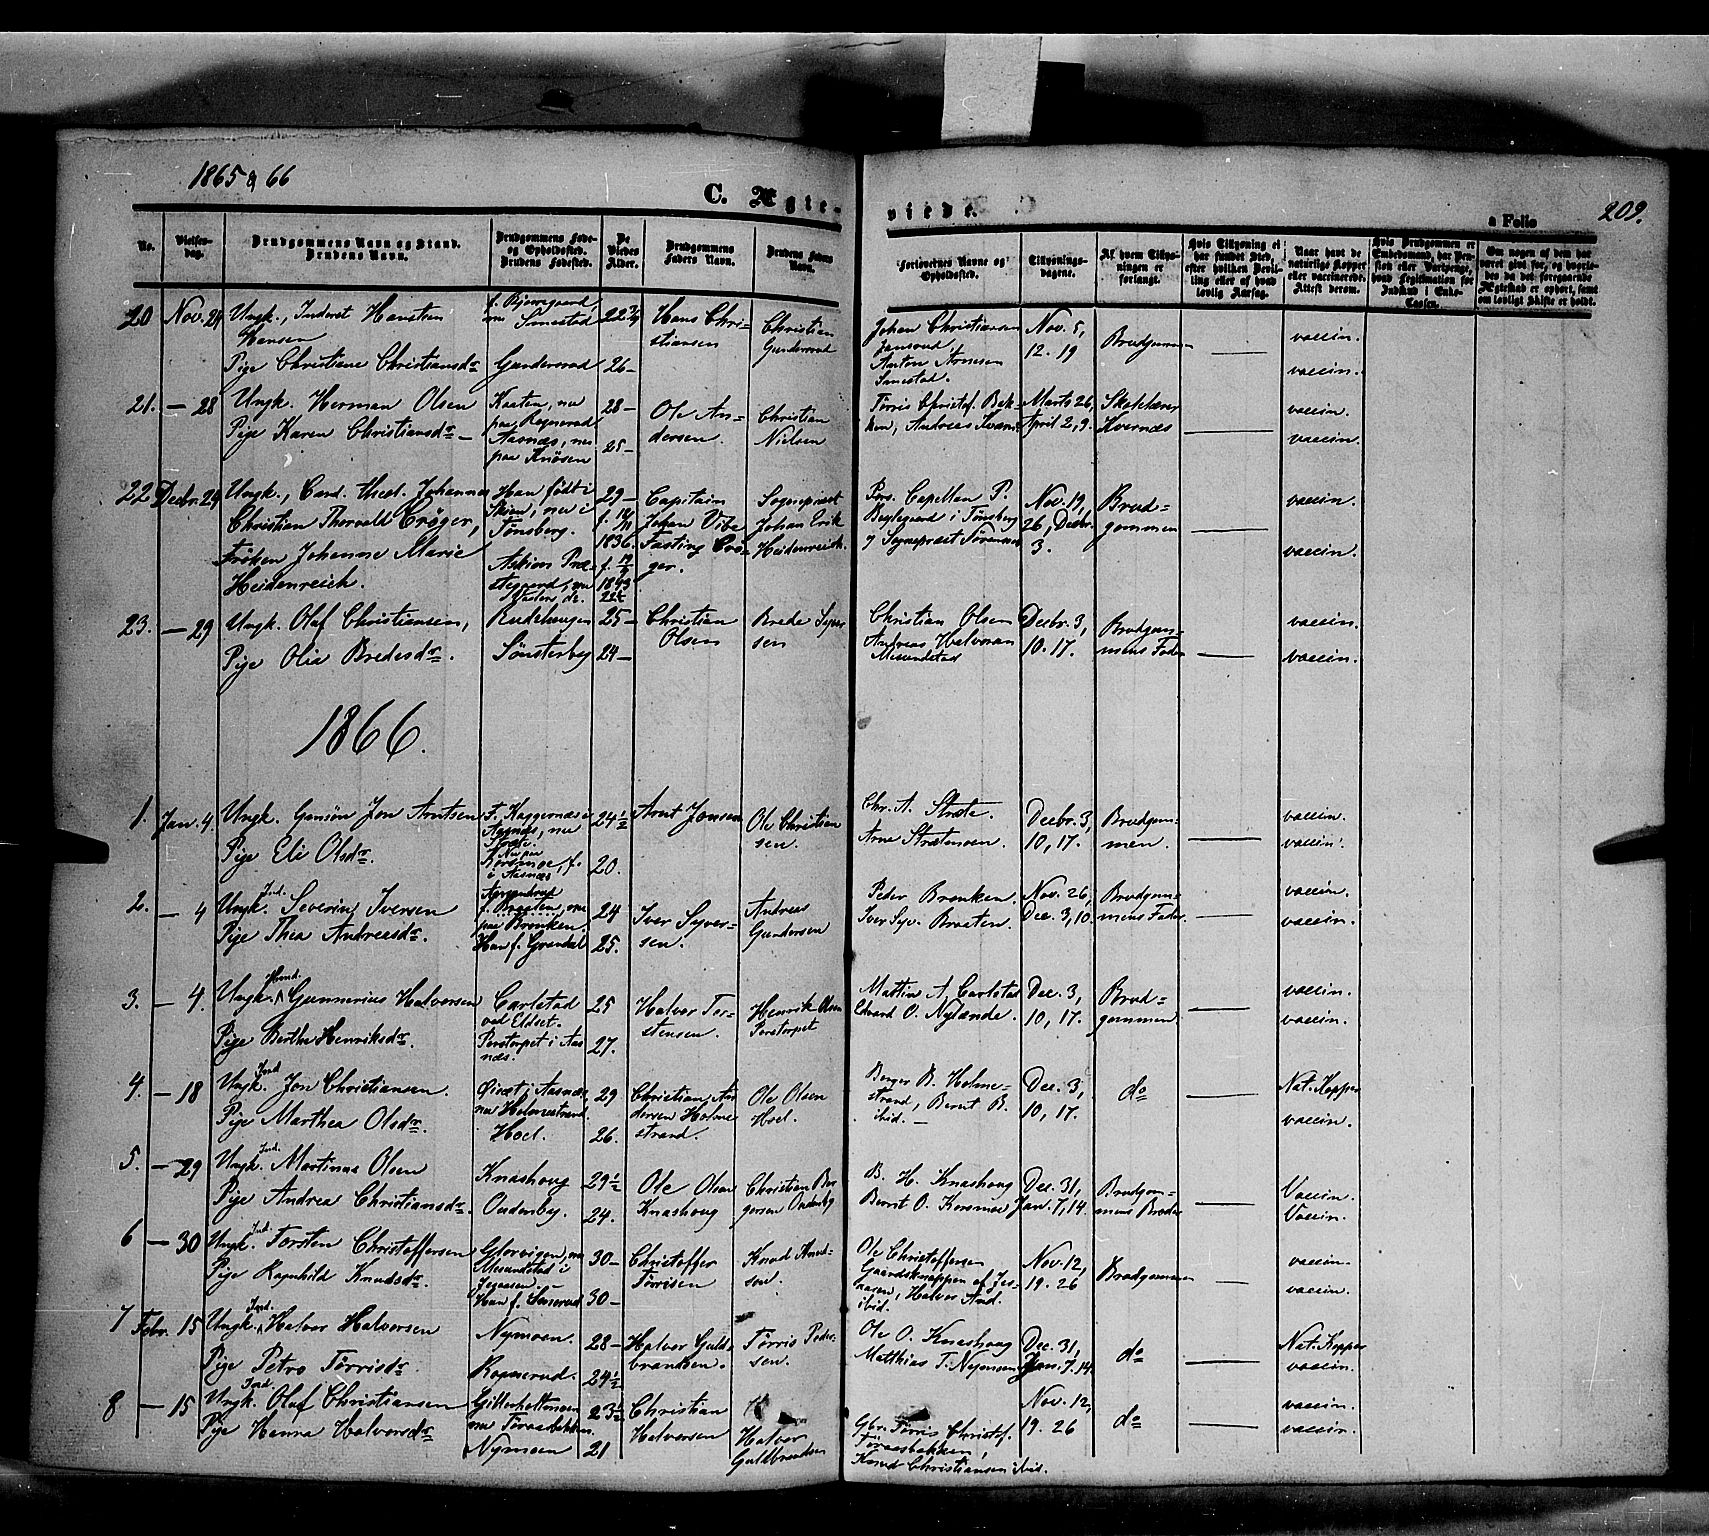 1865 & 66
C. Ægte-
viede.
a Folio
209.
No.
Vielses-
dag.
Brudgommens Navn og Stand.
Brudens Navn.
Brudgommens Føde-
og Opholdssted.
Brudens Fødested.
De
Viedes
Alder.
Brudgommens
Faders Navn.
Brudens Faders
Navn.
Forlovernes Navne og
Opholdssted.
Tillysnings-
dagene.
Af hvem Tillys-
ningen er
forlangt.
Hvis Tillysning ei
har fundet Sted,
efter hvilken Bevil-
ling eller af hvad
lovlig Aarsag.
Naar havt de
naturlige Kopper
eller vaccinerede.
Attest derom.
Hvis Brudgommen er
Embedsmand, har Pen-
sion eller Vartpenge,
hvad Legitimation for
Indskud i Enke-
Cassen.
Om nogen af dem har
været givt før, og hvorle-
des da det foregaaende
Ægteskab er ophørt, samt
om lovligt Skifte er holdt.
20 Nov. 24 Ungk., Inderst Hansen
Pige Christiane Christiansdr Gundersrud 26-
Hans Chri-
stiansen
Christian
Gundersrud
Johan Christiansen
Anton Arnesen
Nov. 5,
12. 19
Brudgommen
vaccin.
vaccin.
21. - 28 Ungk. Herman Olsen
Pige Karen Christiansdr -
28-
25-
Ole An-
dersen.
Christian
Nielsen
Marts 26,
April 2, 9.
Skolelærer
Kvernæs
vaccin.
vaccin.
22 Decbr. 29 Ungk., Cand. theol. Johannes
Christian Thorvald Crøger,
Frøken Johanne Marie
Heidenreich.
Han født i
Skien, nu i
Tønsberg.
29-
1836.
1843
Capitain
Johan Vibe
Fasting Crø-
ger.
Sognepræst
Johan Erik
Heidenreich.
Pers. Capellan P.
i Tønsberg
Nov. 19,
26, Decbr.
3.
Brud-
gommen
vaccin.
vaccin.
23. - 29 Ungk. Olaf Christiansen,
Pige Olia Bredesdr.
Sønsterby
25-
24-
Christian
Olsen
Brede Syver
sen
Christian Olsen
Andreas Halvorsen
Mesundstad
Decbr. 3,
10. 17.
Brudgom-
mens Fader
vaccin.
vaccin.
1866.
1. Jan. 4. Ungk. Jon Arntsen
Pige Eli Olsdr.
24½
20.
Arnt Jonsen
Ole Christian
sen.
Chr. A. Stræte.
Arne Strætmoen.
Decbr. 3,
10, 17.
Brudgom-
men.
vaccin.
vaccin.
2. - 4 Ungk. Ind. Severin Iversen
Pige Thea Andreasdr.
f. Braaten, nu
paa Bronken.
24
25.
Iver Syver-
sen.
Andreas
Gundersen
Peder Bronken.
Iver Syv. Braaten.
Nov. 26,
Dec. 3, 10.
Brudgom-
mens Fader
vaccin.
vaccin.
3. - 4. Ungk. Gunnerius Halvorsen
Pige Berthe Henriksdr.
Carlstad
ved Eldset.
Perstorpet i Aas-
næs.
25
27.
Halvor Tor-
stensen.
Henrik Olsen
Perstorpet
Mattin A. Carlstad
Edvard O. Nylænde.
Dec. 3,
10, 17.
Brud-
gommen.
vaccin.
vaccin.
4. - 18 Ungk. Ind. Jon Christiansen.
Pige Marthea Olsdr.
i Aasnæs,
nu Holmestrand.
Hoel.
29
26.
Christian An-
dersen Holme
strand.
Ole Olsen
Hoel.
Berger B. Holme-
strand, Bernt B.
ibid. -
Dec. 3,
10, 17.
do
Nat. Kopper
vaccin.
5. - 29 Ungk. Ind. Martinus Olsen
Pige Andrea Christiansdr.
Knashoug
Oudenby.
29½
24.
Ole Olsen
Knashoug
Christian Ber
gersen Oudenby
B. H. Knashoug
Bernt O. Korsmoe
Dec. 31,
Jan. 7, 14.
Brudgom-
mens Broder
Vaccin.
Vaccin.
6 - 30 Ungk. Ind. Torsten Christoffersen
Pige Ragnhild Knudsdr.
Glorvigen, nu
Mesundstad i
30-
30-
Christoffer
Tørrisen
Knud Knud-
sen.
Ole Christoffersen
ibid.
Nov. 12,
19. 26
Brudgommen
vaccin.
vaccin.
7 Febr. 15 Ungk. Ind. Halvor Halvorsen
Pige Petro Tørrisdr.
Nymoen
28-
24½
Halvor Guld-
brandsen.
Tørris Peder-
sen.
Ole O. Knashoug
Matthias T. Nymoen
Dec. 31,
Jan. 7. 14
do
Nat. Kopper
vaccin.
8 - 15 Ungk. Ind. Olaf Christiansen
Pige Hanna Halvorsdr
nu Toraasbakken.
Nymoen
23½
21
Christian
Halvorsen
Halvor
Guldbrandsen
Gbr. Tørris Christof.
Toraasbakken,
Knud Christiansen ibid.
Nov. 12,
19. 26
do
vaccin.
vaccin.